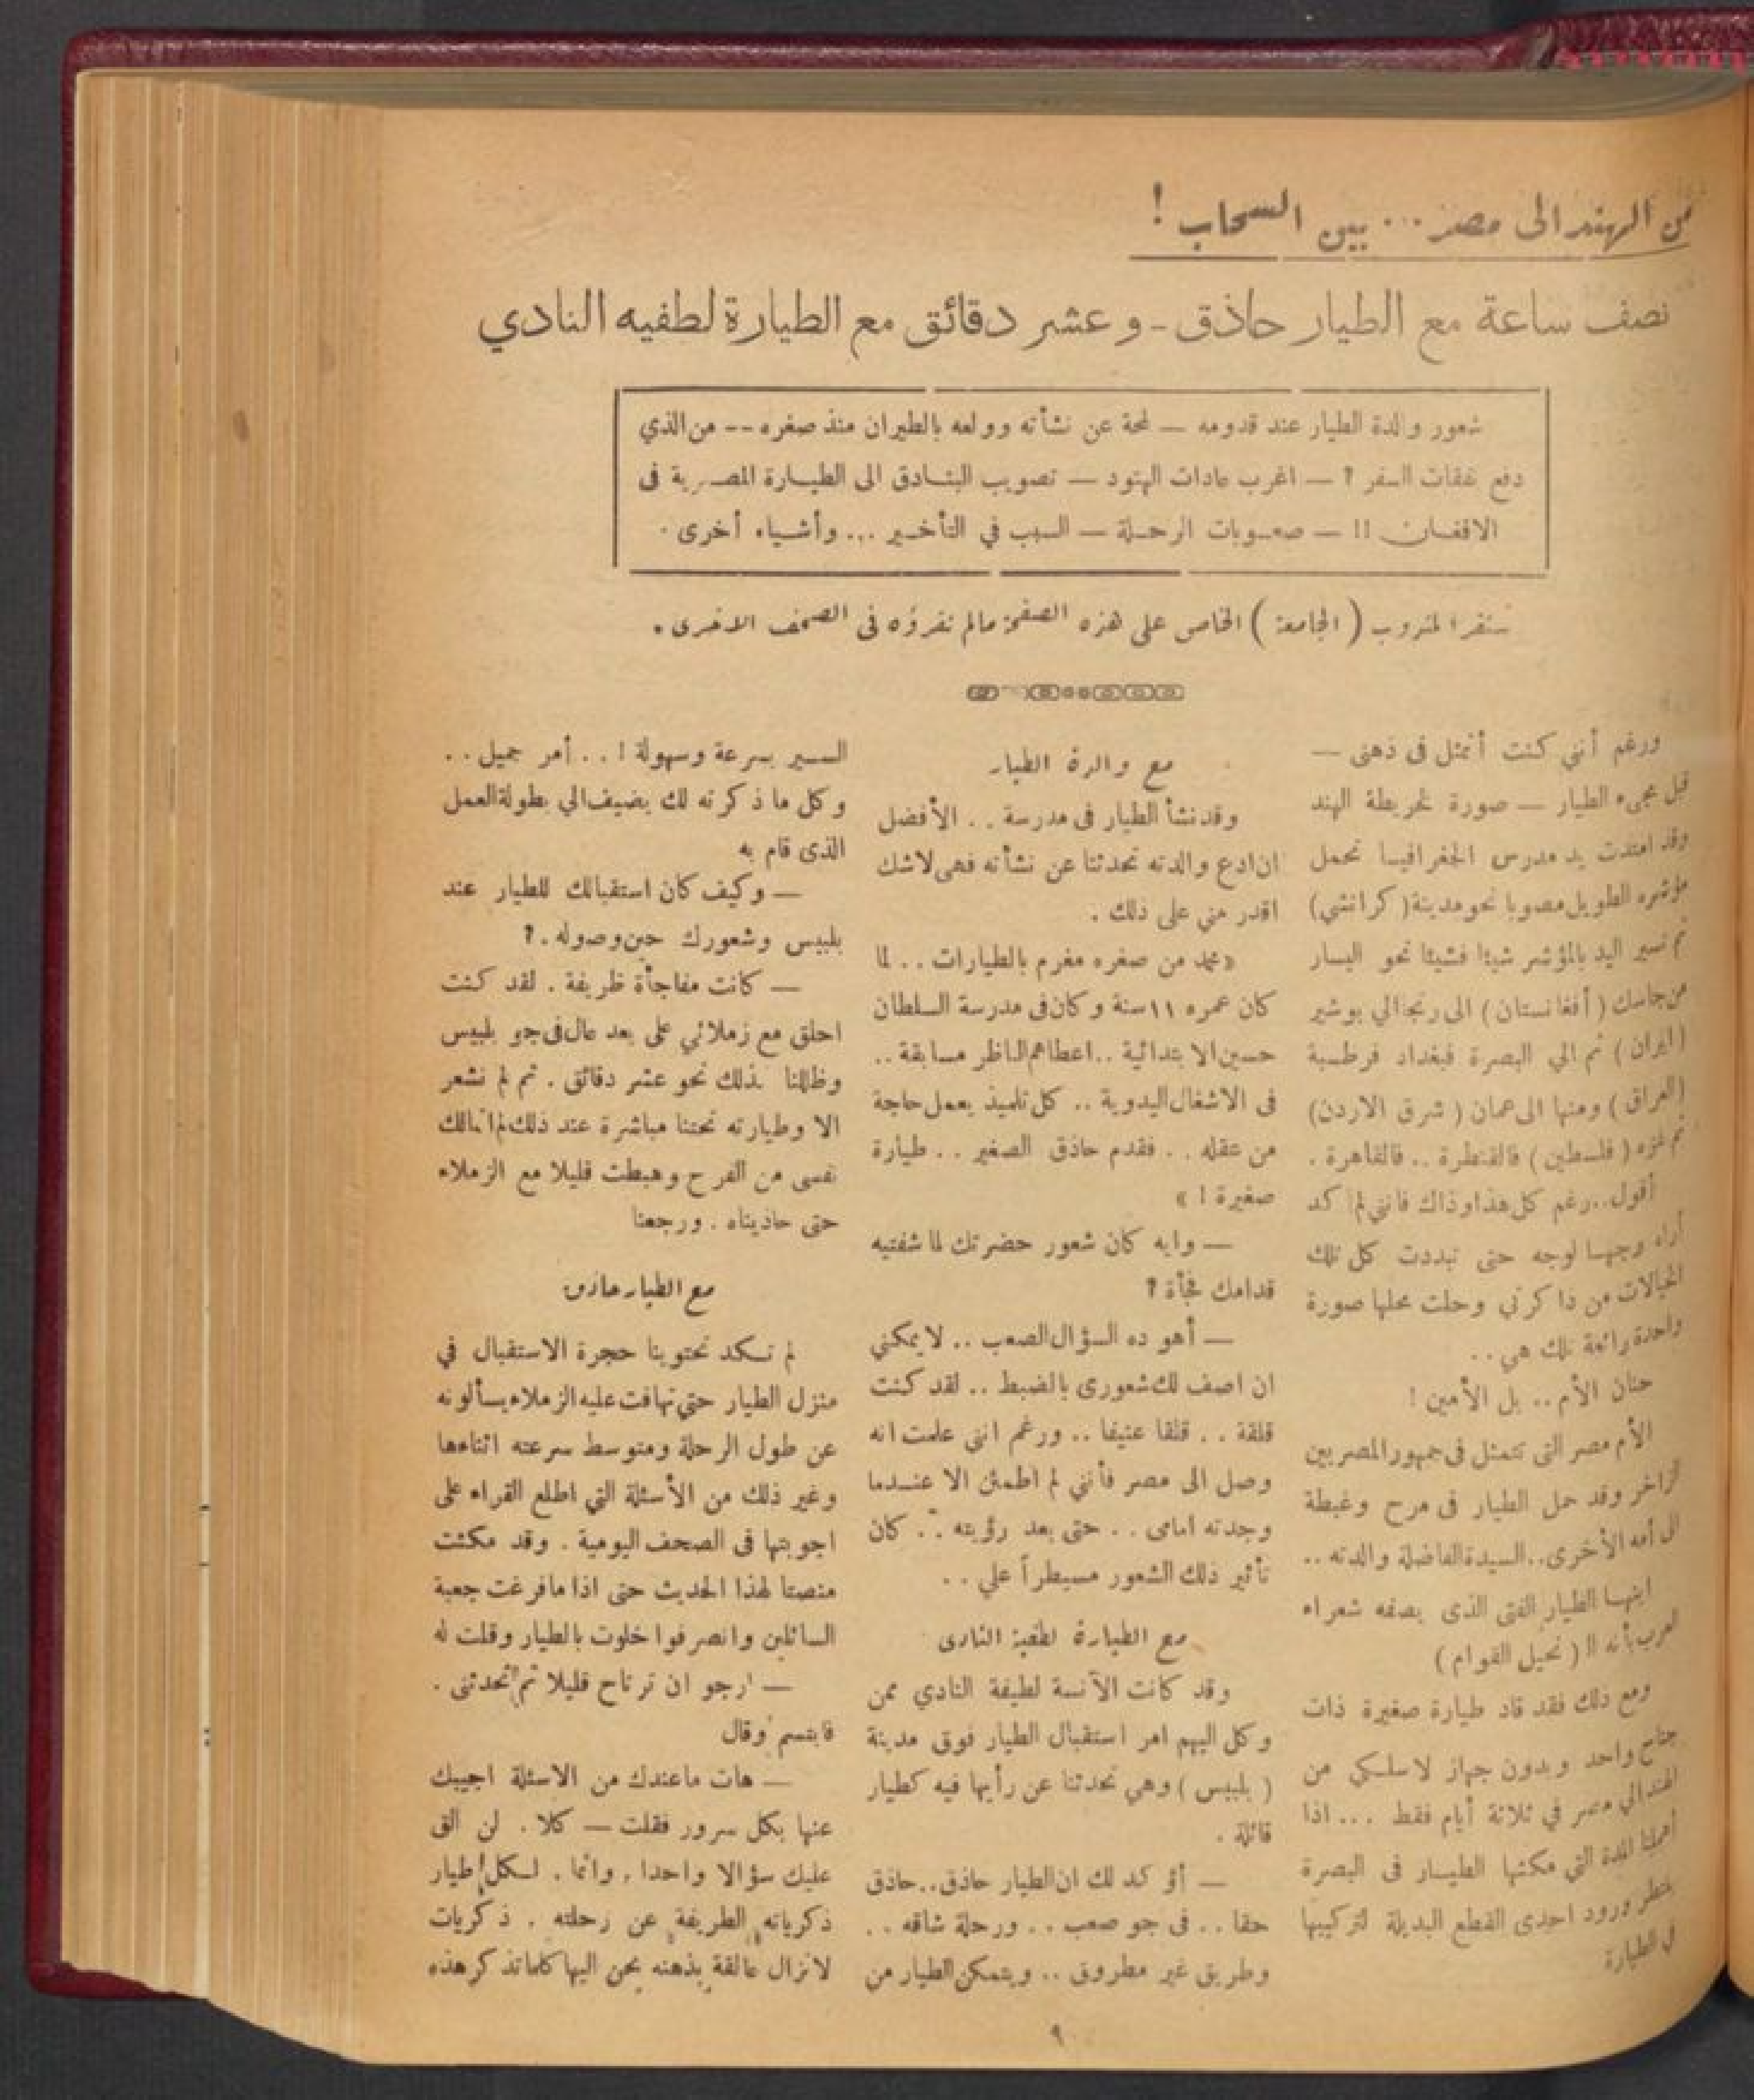 من الهند الى مصر ... بين السحاب !
نصف ساعة مع الطيار حاذق - وعشر دقائق مع الطيارة لطفيه النادي
شعور والدة الطيار عند قدومه — لمحة عن نشأته وولعه بالطيران منذ صغره -- من الذي
دفع نفقات السفر ؟ — اغرب عادات الهنود — تصويب البنادق الى الطيارة المصرية فى
الافغان !! — صعوبات الرحلة — السبب في التأخير ... وأشياء أخرى .
ستقرأ لمندوب ( الجامعة ) الخاص على هذه الصفحة مالم تقرؤه فى الصحف الاخرى .
ورغم أنني كنت أتمثل فى ذهنى —
قبل مجىء الطيار — صورة لخريطة الهند
وقد امتدت يد مدرس الجغرافيا تحمل
مؤشره الطويل مصوبا نحو مدينة ( كراتشي )
ثم تسير اليد بالمؤشر شيئا فشيئا نحو اليسار
من جاسك ( أفغانستان ) الى رنجا الي بوشير
( ايران ) ثم الي البصرة فبغداد فرطبة
( العراق ) ومنها الى عمان ( شرق الاردن )
ثم غزه ( فلسطين ) فالقنطرة .. فالقاهرة .
أقول .. رغم كل هذا وذاك فانني لم أكد
أراه وجها لوجه حتى تبددت كل تلك
الخيالات من ذاكرتي وحلت محلها صورة
واحدة رائعة تلك هي ..
حنان الأم .. بل الأمين !
الأم مصر التى تتمثل فى جمهور المصريين
الزاخر وقد حمل الطيار فى مرح وغبطة
الى أمه الأخرى .. السيدة الفاضلة والدته ..
ابنها الطيار الفتى الذى يصفه شعراء
العرب بأنه الـ ( نحيل القوام )
ومع ذلك فقد قاد طيارة صغيرة ذات
جناح واحد وبدون جهاز لاسلكي من
الهند الي مصر في ثلاثة أيام فقط ... اذا
أهملنا المدة التي مكثها الطيار فى البصرة
ينتظر ورود احدى القطع البديلة لتركيبها
في الطيارة
مع والدة الطيار
وقد نشأ الطيار فى مدرسة .. الأفضل
ان ادع والدته تحدثنا عن نشأته فهى لاشك
اقدر مني على ذلك .
« محمد من صغره مغرم بالطيارات .. لما
كان عمره ١١ سنة وكان فى مدرسة السلطان
حسين الابتدائية .. اعطاهم الناظر مسابقة ..
فى الاشغال اليدوية .. كل تلميذ يعمل حاجة
من عقله .. فقدم حاذق الصغير .. طيارة
صغيرة ! »
— وايه كان شعور حضرتك لما شفتيه
قدامك فجأة ؟
— أهو ده السؤال الصعب .. لا يمكني
ان اصف لك شعورى بالضبط .. لقد كنت
قلقة .. قلقا عنيفا .. ورغم انى علمت انه
وصل الى مصر فأنني لم اطمئن الا عندما
وجدته امامى .. حتى بعد رؤيته .. كان
تأثير ذلك الشعور مسيطراً علي ..
مع الطيارة لطفية النادى
وقد كانت الآنسة لطيفة النادي ممن
وكل اليهم امر استقبال الطيار فوق مدينة
( بلبيس ) وهي تحدثنا عن رأيها فيه كطيار
قائلة .
— أؤكد لك ان الطيار حاذق .. حاذق
حقا .. فى جو صعب .. ورحلة شاقه ..
وطريق غير مطروق .. ويتمكن الطيار من
السير بسرعة وسهولة ! .. أمر جميل ..
وكل ما ذكرته لك يضيف الي بطولة العمل
الذى قام به
— وكيف كان استقبالك للطيار عند
بلبيس وشعورك حين وصوله . ؟
— كانت مفاجأة ظريفة . لقد كنت
احلق مع زملائي على بعد عال فى جو بلبيس
وظللنا بذلك نحو عشر دقائق . ثم لم نشعر
الا وطيارته تحتنا مباشرة عند ذلك لم أتمالك
نفسى من الفرح وهبطت قليلا مع الزملاء
حتى حاذيناه . ورجعنا
مع الطيار حاذق
لم تكد تحتوينا حجرة الاستقبال في
منزل الطيار حتى تهافت عليه الزملاء يسألونه
عن طول الرحلة ومتوسط سرعته اثناءها
وغير ذلك من الأسئلة التي اطلع القراء على
اجوبتها فى الصحف اليومية . وقد مكثت
منصتا لهذا الحديث حتى اذا ما فرغت جعبة
السائلين وانصرفوا خلوت بالطيار وقلت له
— ارجو ان ترتاح قليلا ثم تحدثنى .
فابتسم وقال
— هات ماعندك من الاسئلة اجيبك
عنها بكل سرور فقلت — كلا . لن الق
عليك سؤالا واحدا . وانما . لكل طيار
ذكرياته الطريفة عن رحلته . ذكريات
لا تزال عالقة بذهنه يحن اليها كلما تذكر هذه
٩